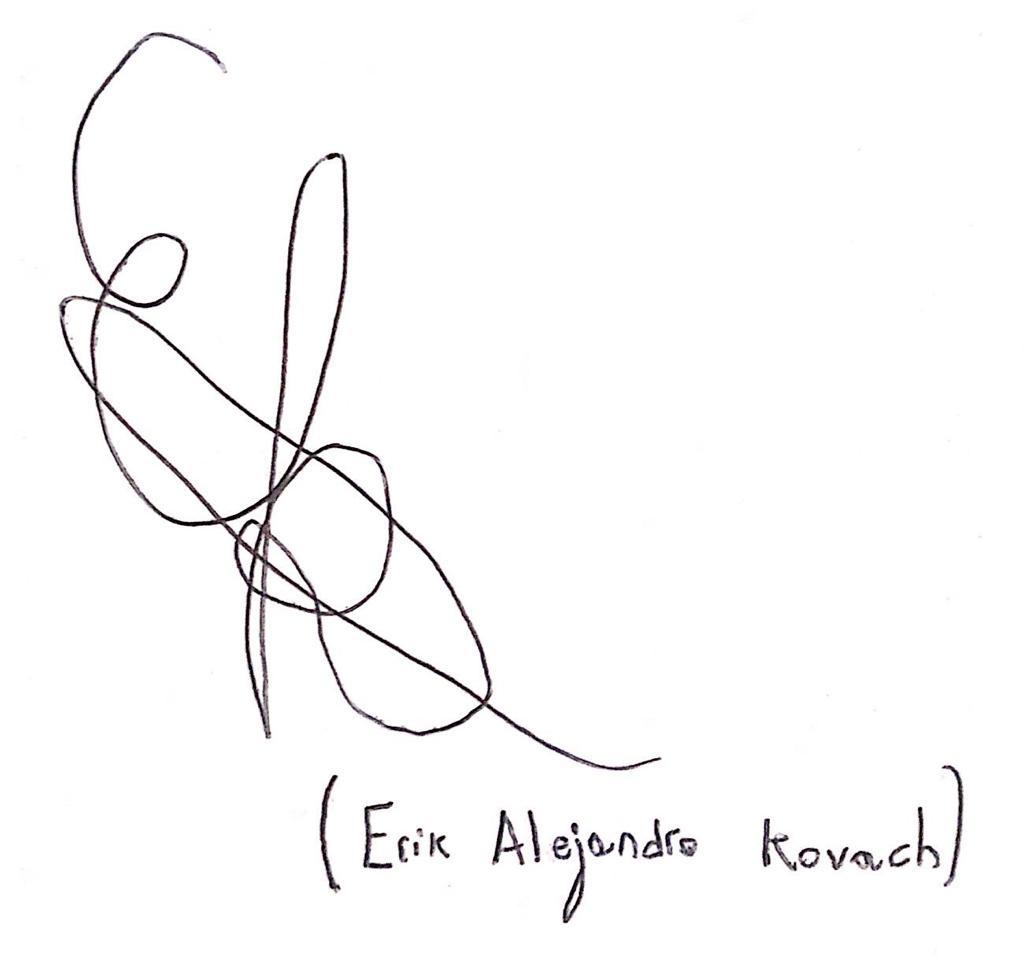 (Erik Alejandro Kovach)